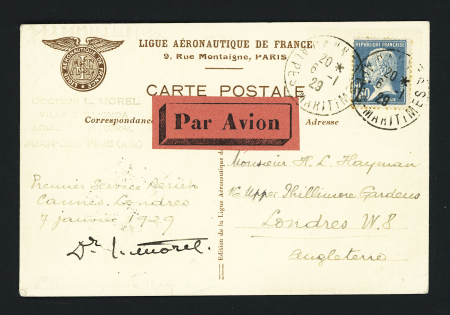 LIGUE AÉRONAUTIQUE DE FRANCE
9, Rue Montaigne, PARIS
CARTE POSTALE
RÉPUBLIQUE FRANÇAISE
20 *
6 -1
29
MARITIMES
Par Avion
Correspondance
Adresse
Docteur L. MOREL
Edition de la Ligue Aéronautique de
Premier Service Aérien
Cannes. Londres
7 janvier 1929
Dr. L. Morel.
Monsieur H. L. Hayman
Upper Phillimore Gardens
Londres W. 8
Angleterre